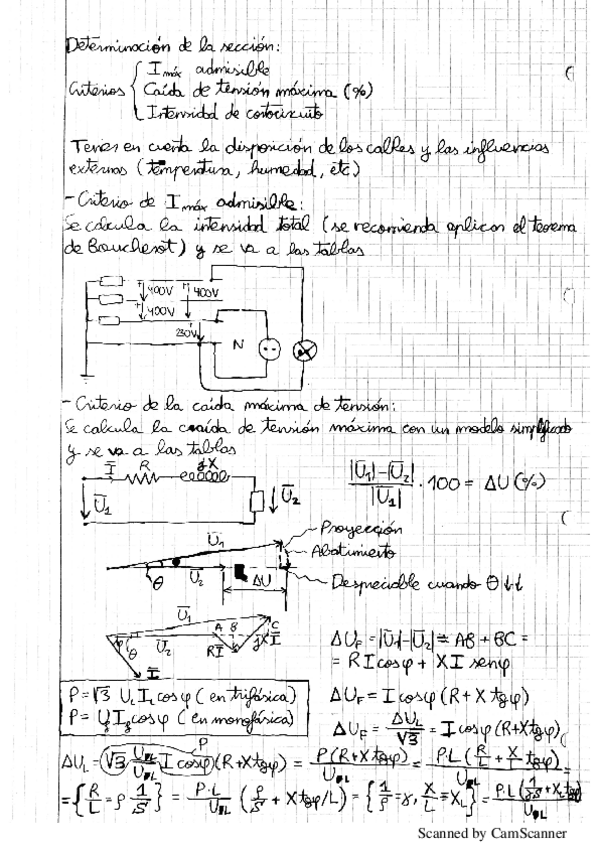 Determinación de la sección:
Criterios { Imáx admisible
Caída de tensión máxima (%)
Intensidad de cortocircuito
Tener en cuenta la disposición de los cables y las influencias
externas (temperatura, humedad, etc)
- Criterio de Imáx admisible:
Se calcula la intensidad total (se recomienda aplicar el teorema
de Boucherot) y se va a las tablas
400V 400V
400V
230V N
- Criterio de la caida máxima de tensión:
Se calcula la caída de tensión máxima con un modelo simplificado
y se va a las tablas
I R jX
U1 U2
|U1|-|U2| / |U1| · 100 = ΔU (%)
U1 Proyección
Abatimiento
θ U2 ΔU Despreciable cuando θ ↓↓
U1 A B C
φ θ U2 RI jXI
I
ΔUF = |U1|-|U2| ≅ AB + BC =
= R I cosφ + X I senφ
P = √3 UL IL cosφ (en trifásica)
ΔUF = I cosφ (R + X tgφ)
P = Uf If cosφ (en monofásica)
ΔUF = ΔUL / √3 = I cosφ (R+X tgφ)
P
ΔUL = √3 UL/UL I cosφ (R+X tgφ) = P(R+X tgφ) / UL = P·L (R/L + X/L tgφ) / UL =
= {R/L = ρ 1/S} = P·L / UL (ρ/S + X tgφ/L) = {1/ρ = γ, X/L = XL} = P·L (1/γS + XL tgφ) / UL
Scanned by CamScanner